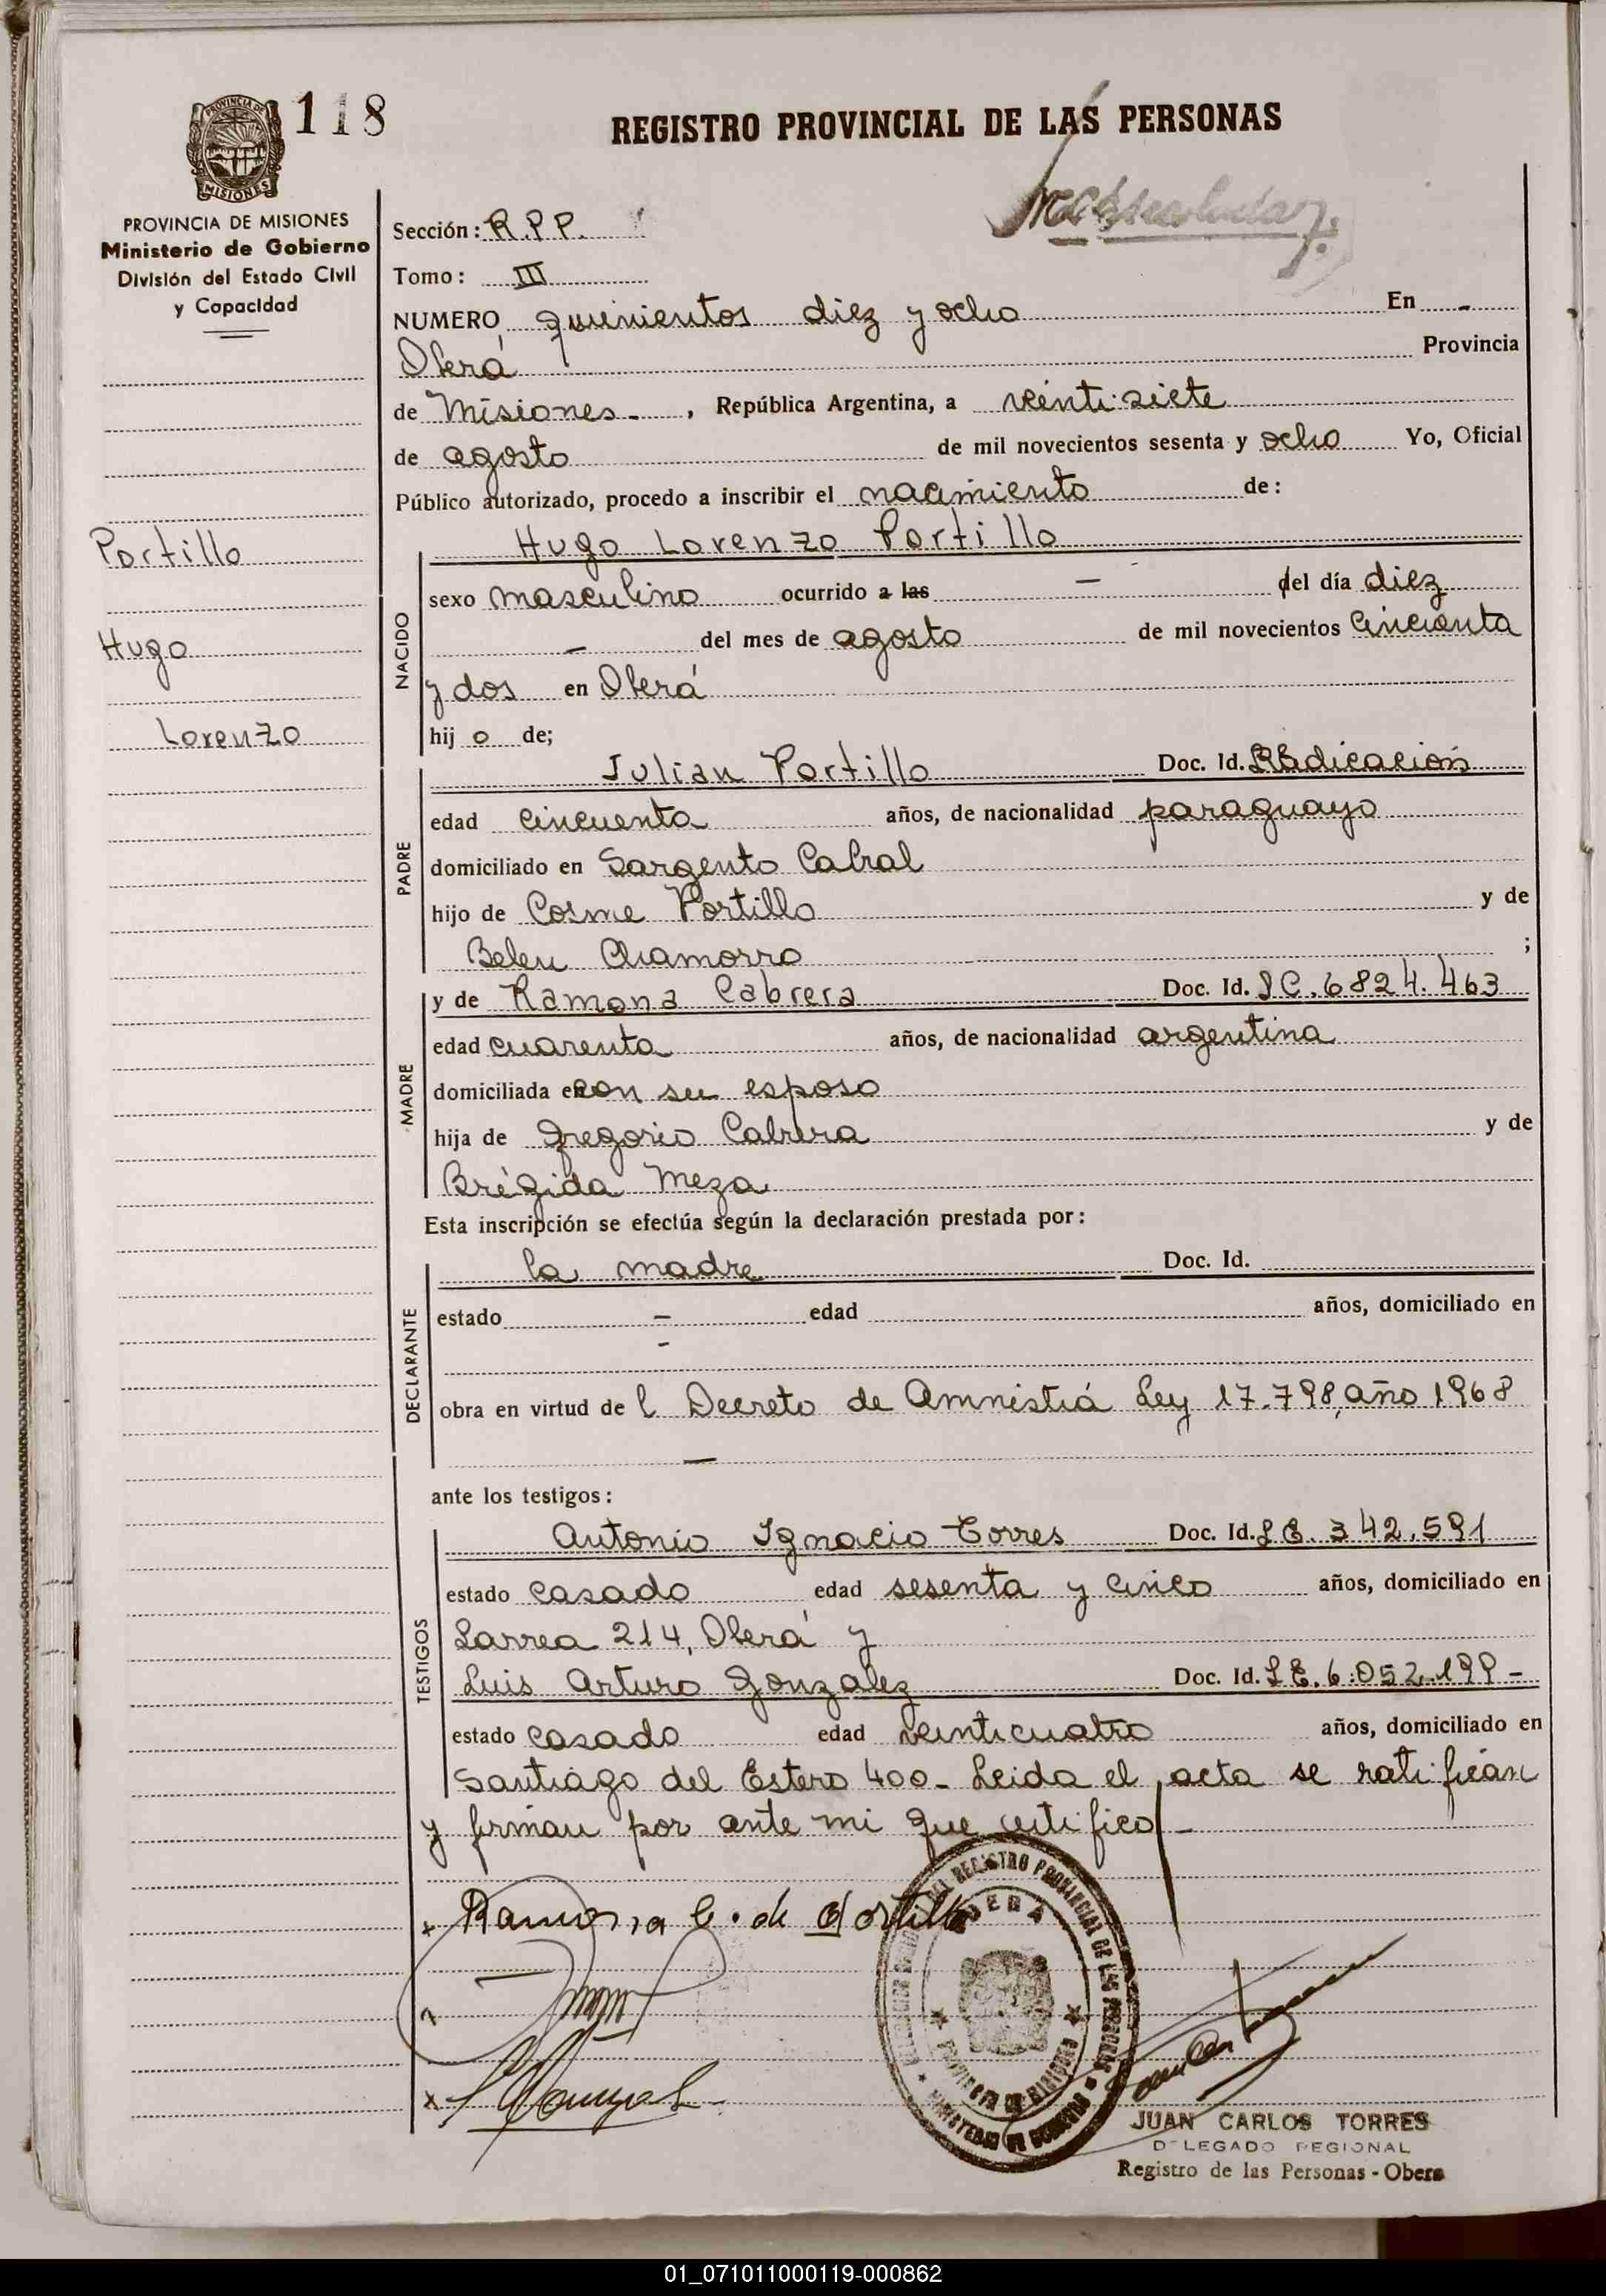 118
REGISTRO PROVINCIAL DE LAS PERSONAS
PROVINCIA DE MISIONES
MISIONES
PROVINCIA DE MISIONES
Ministerio de Gobierno
División del Estado Civil
y Capacidad
Portillo
Hugo
Lorenzo
Sección: R.P.P.
Tomo: III
NUMERO quinientos diez y ocho En -
Oberá Provincia
de Misiones - , República Argentina, a veinti siete
de agosto de mil novecientos sesenta y ocho Yo, Oficial
Público autorizado, procedo a inscribir el nacimiento de:
Hugo Lorenzo Portillo
NACIDO
sexo masculino ocurrido a las - del día diez
- del mes de agosto de mil novecientos cincuenta
y dos en Oberá
hij o de;
PADRE
Julian Portillo Doc. Id. Radicación
edad cincuenta años, de nacionalidad paraguayo
domiciliado en Sargento Cabral
hijo de Cosme Portillo y de
Belen Chamorro ;
MADRE
y de Ramona Cabrera Doc. Id. LC. 6824.463
edad cuarenta años, de nacionalidad argentina
domiciliada en con su esposo
hija de Gregorio Cabrera y de
Brígida Meza
Esta inscripción se efectúa según la declaración prestada por:
DECLARANTE
la madre Doc. Id.
estado - edad años, domiciliado en
-
obra en virtud de l Decreto de Amnistiá Ley 17.798, año 1968
-
ante los testigos:
TESTIGOS
Antonio Ignacio Torres Doc. Id. LE. 342.591
estado casado edad sesenta y cinco años, domiciliado en
Larrea 214, Oberá y
Luis Arturo Gonzalez Doc. Id. LE. 6.052.199 -
estado casado edad veinticuatro años, domiciliado en
Santiago del Estero 400 - Leida el acta se ratifican
y firman por ante mi que certifico -
x Ramona C. de Portillo
OBERA
PROVINCIA DE MISIONES
JUAN CARLOS TORRES
DELEGADO REGIONAL
Registro de las Personas - Obera
01_071011000119-000862